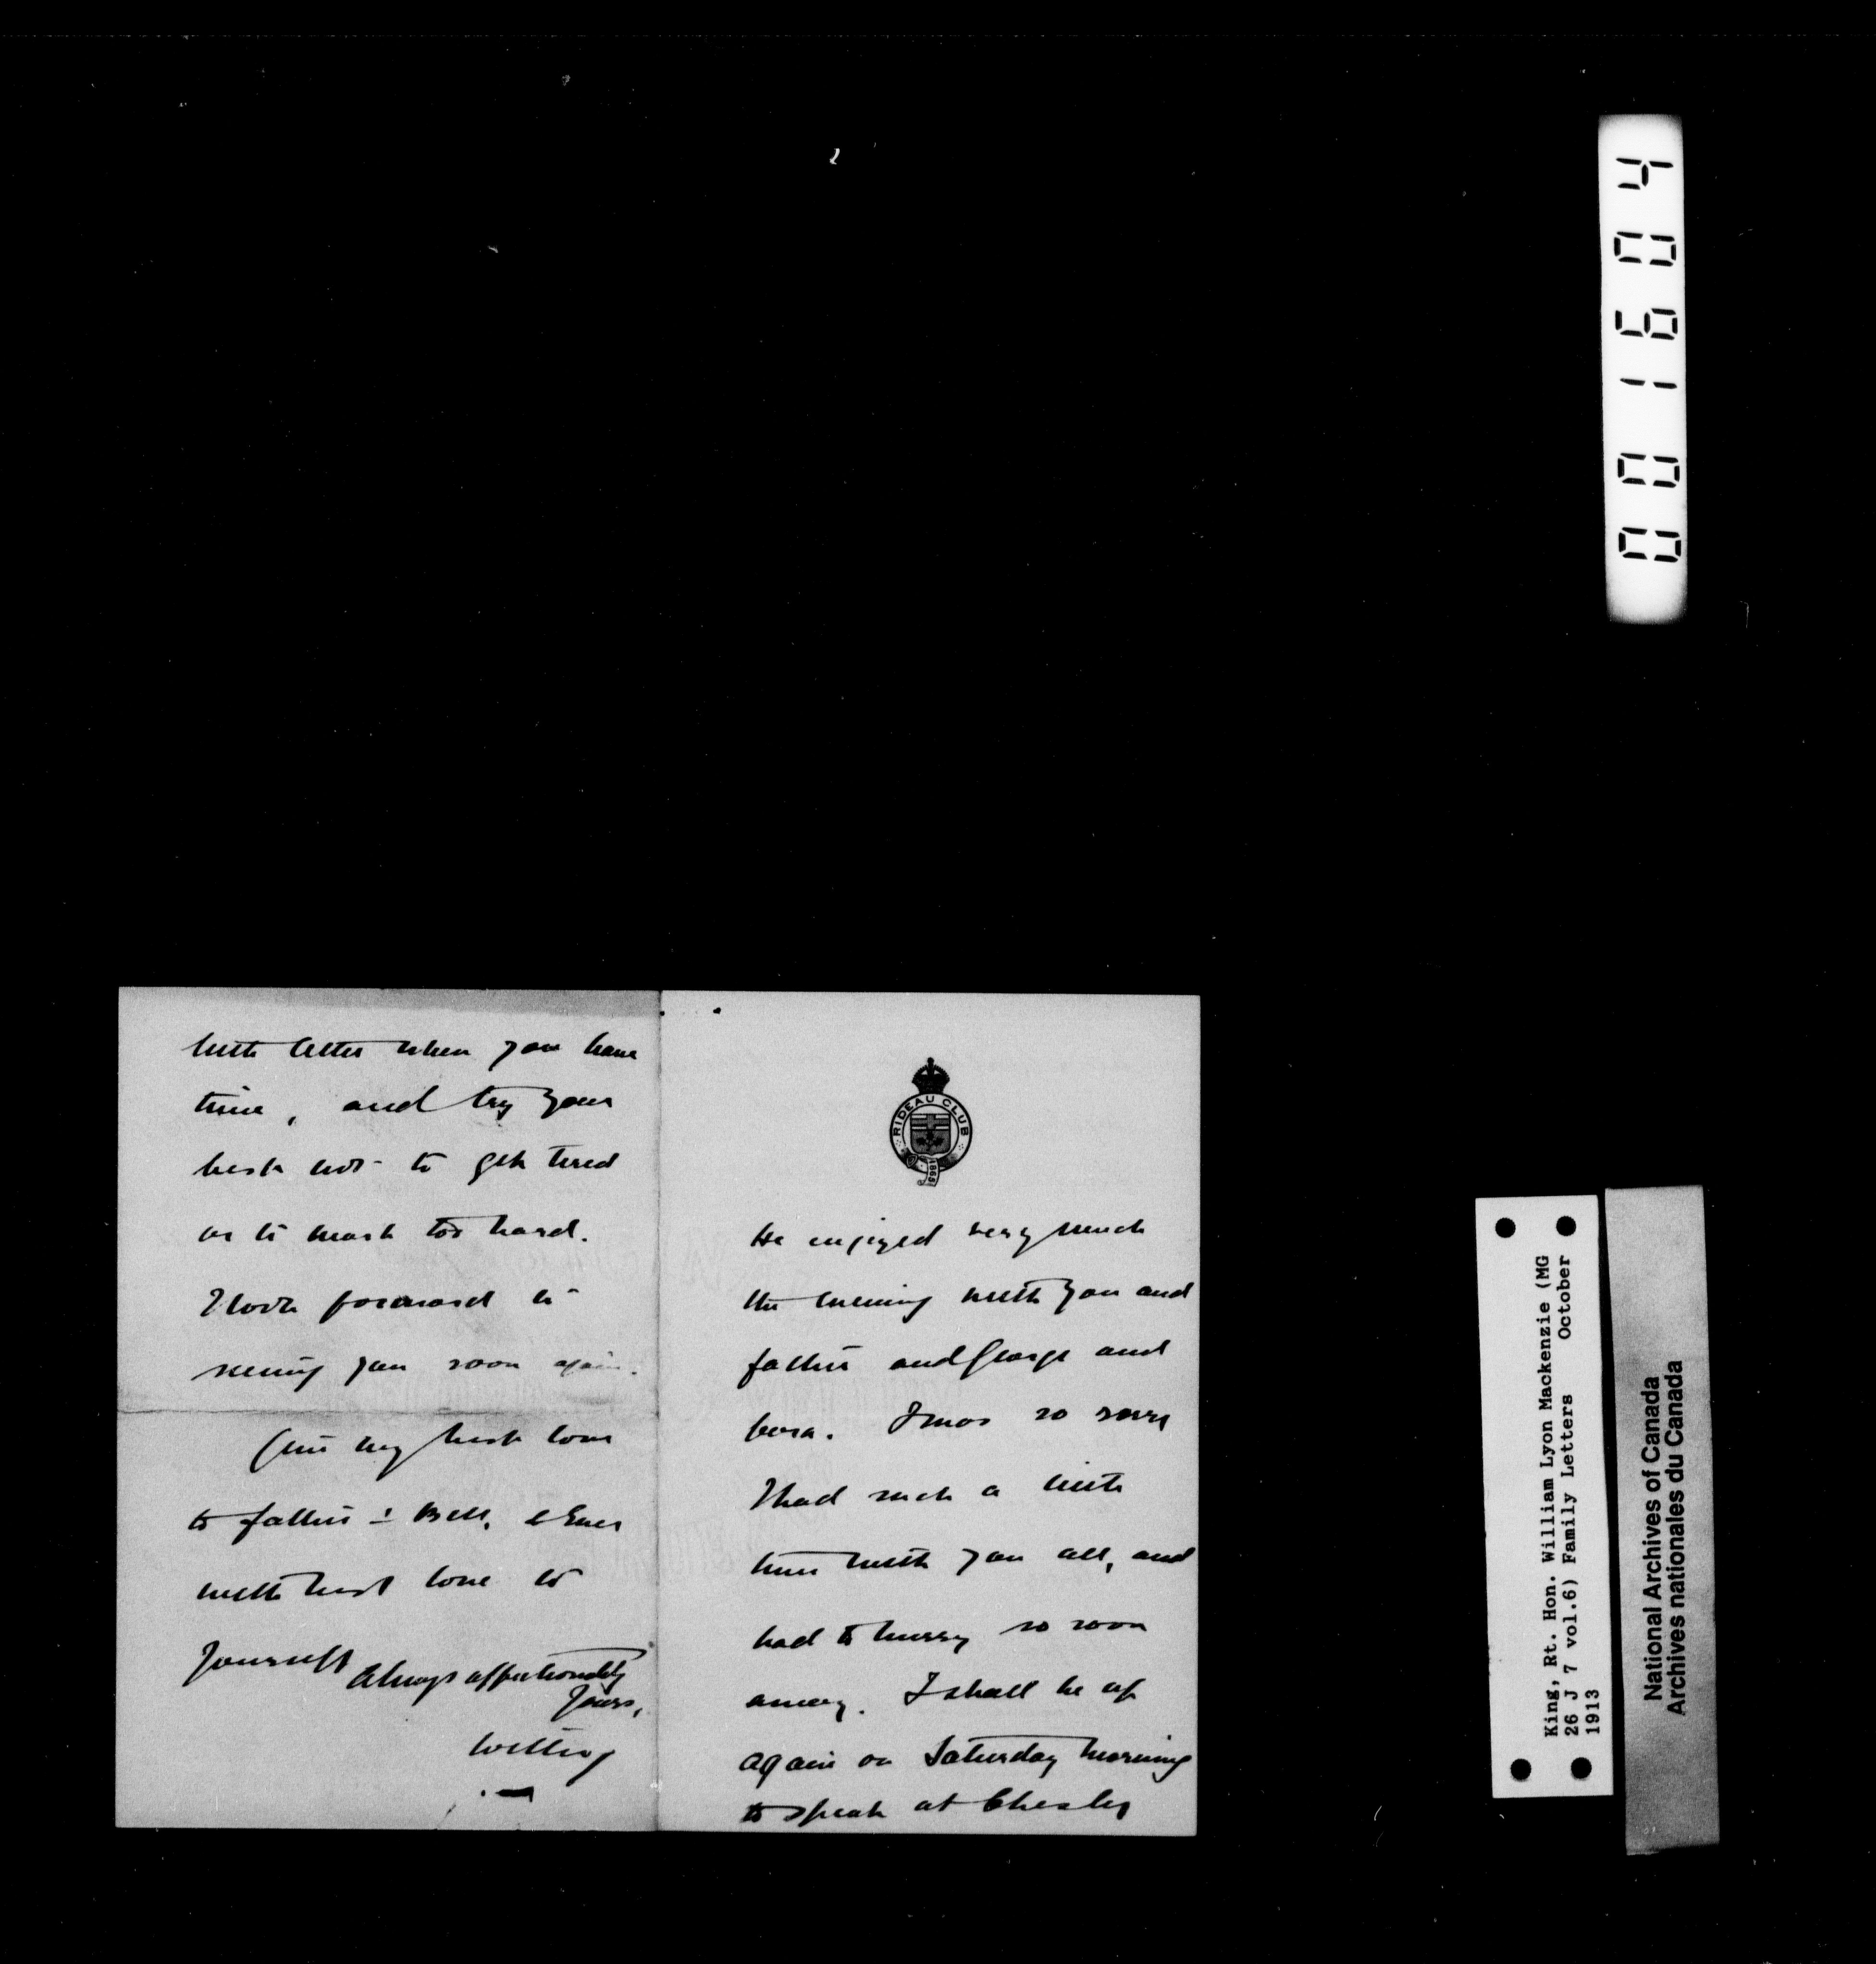 little letter when you have
time, and try your
best not to get tired
or to work too hard.
I look forward to
seeing you soon again.
Give my best love
to father & Bell, & Ever
with best love to
yourself
Always affectionately
Yours,
Willie
RIDEAU CLUB
1865
He enjoyed very much
the evening with you and
father and George and
I was so sorry
I had such a little
time with you all, and
had to hurry so soon
away. I shall be up
again on Saturday morning
to speak at Chesley
001604
King, Rt. Hon. William Lyon Mackenzie (MG
26 J 7 vol.6) Family Letters October
1913
National Archives of Canada
Archives nationales du Canada